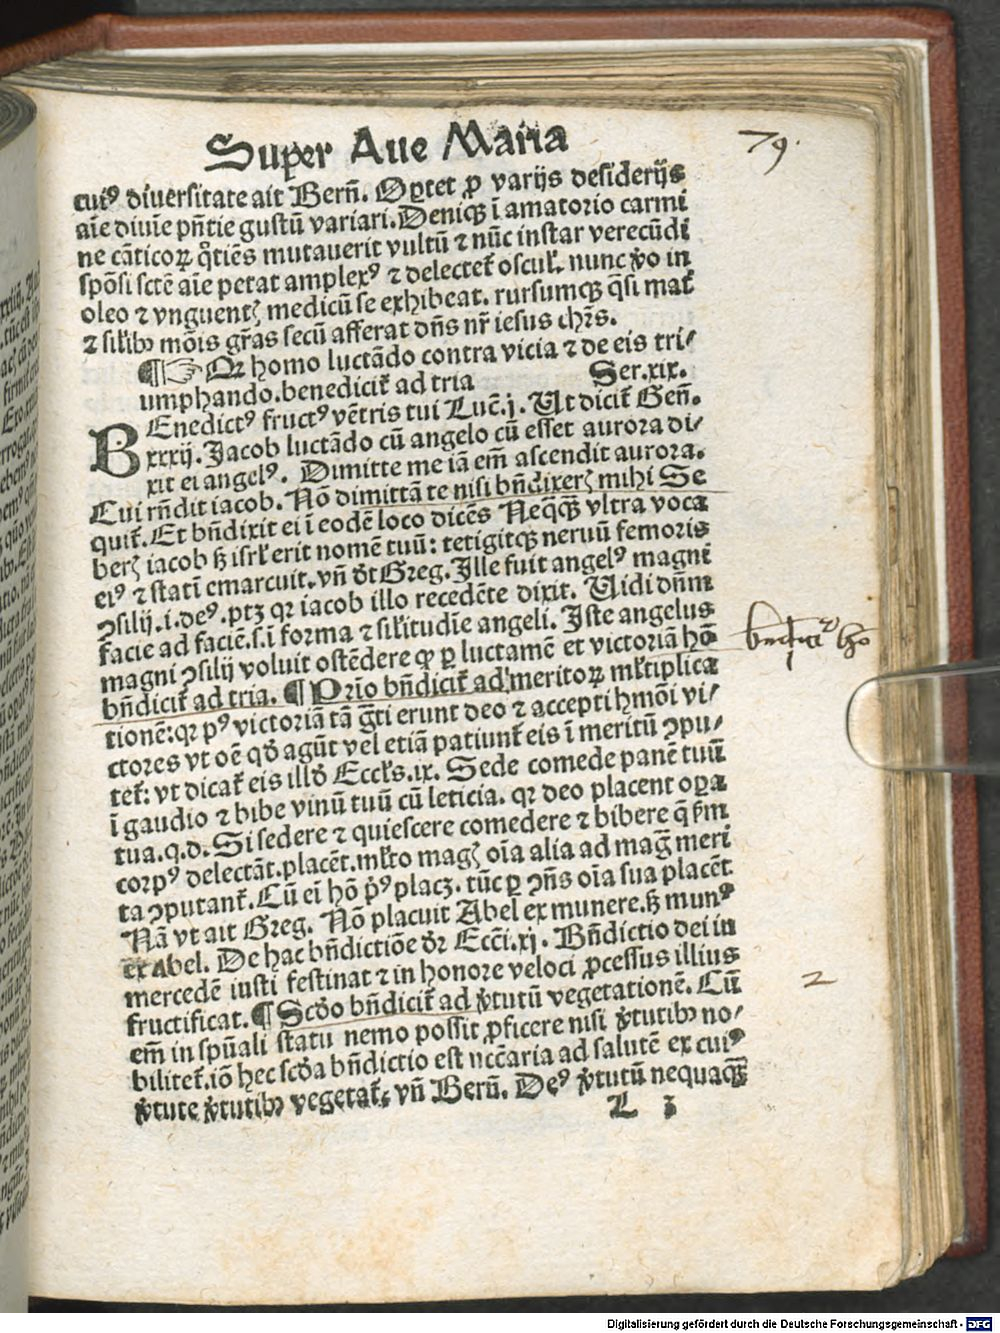 Super Aue Maria
79.
cuiꝰ diuersitate ait Berñ. Oꝑtet ꝓ varijs desiderijs
aĩe diuine pñtie gustũ variari. Deniqꝫ ĩ amatorio carmi
ne cãticoꝝ q̊tiẽs mutauerit vultũ ⁊ nũc instar verecũdi
spõsi sctẽ aĩe petat amplexꝰ ⁊ delectet᷑ osculꝭ. nunc ꝟo in
oleo ⁊ vnguentꝭ medicũ se exhibeat. rursumqꝫ q̃si mat᷑
⁊ silꝭibꝰ mõis gr̃as secũ afferat dñs nr̃ iesus chr̃s.
¶ ☞ Qꝛ homo luctãdo contra vicia ⁊ de eis tri⸗
umphando. benedicit᷑ ad tria Ser. xix.
BEnedictꝰ fructꝰ vẽtris tui Luc̃. j. Ut dicit᷑ Geñ.
xxxij. Jacob luctãdo cũ angelo cũ esset aurora di⸗
xit ei angelꝰ. Dimitte me iã em̃ ascendit aurora.
Cui rñdit iacob. Nõ dimittã te nisi bñdixerꝭ mihi Se
quit᷑. Et bñdixit ei ĩ eodẽ loco dicẽs Neqꝙꝫ vltra voca
berꝭ iacob sꝫ isrl' erit nomẽ tuũ: tetigitqꝫ neruũ femoris
eiꝰ ⁊ statĩ emarcuit. vñ d̃t Greg. Ille fuit angelꝰ magni
ꝯsilij. i. deꝰ. ptꝫ qꝛ iacob illo recedẽte dixit. Uidi dñm
facie ad faciẽ. s. i forma ⁊ silꝭitudĩe angeli. Iste angelus
magni ꝯsilij voluit ostẽdere ꝙ ꝑ luctamẽ et victoriã hõ
bñdicit᷑ ad tria. ¶ Prĩo bñdicit᷑ ad meritoꝝ mlꝭtiplica
tionẽ: qꝛ pꝰ victoriã tã g̃ti erunt deo ⁊ accepti hmõi vi⸗
ctores vt oẽ qd̃ agũt vel etiã patiunt᷑ eis ĩ meritũ ꝯpu⸗
tet᷑: vt dicat᷑ eis illd̃ Eccl̃s. ix. Sede comede panẽ tuũ
ĩ gaudio ⁊ bibe vinũ tuũ cũ leticia. qꝛ deo placent oꝑa
tua. q. d. Si sedere ⁊ quiescere comedere ⁊ bibere q̃ ꝓm
corpꝰ delectãt. placẽt. mlꝭto magꝭ oĩa alia ad mag̃ meri
ta ꝯputant᷑. Cũ ei hõ p̃ꝰ placꝫ. tũc ꝑ ꝯñs oĩa sua placẽt
Nã vt ait Greg. Nõ placuit Abel ex munere. sꝫ munꝰ
ex Abel. De hac bñdictiõe dꝛ Ecc̃i. xj. Bñdictio dei in
mercedẽ iusti festinat ⁊ in honore veloci ꝓcessus illius
fructificat. ¶ Scd̃o bñdicit᷑ ad ꝟtutũ vegetationẽ. Cũ
em̃ in spũali statu nemo possit ꝓficere nisi ꝟtutibꝰ no⸗
bilitet᷑. iõ hec scd̃a bñdictio est nccãria ad salutẽ ex cuiꝰ
ꝟtute ꝟtutibꝰ vegetat᷑. vñ Berñ. Deꝰ ꝟtutũ nequaqꝫ
L 3
2
Digitalisierung gefördert durch die Deutsche Forschungsgemeinschaft - DFG